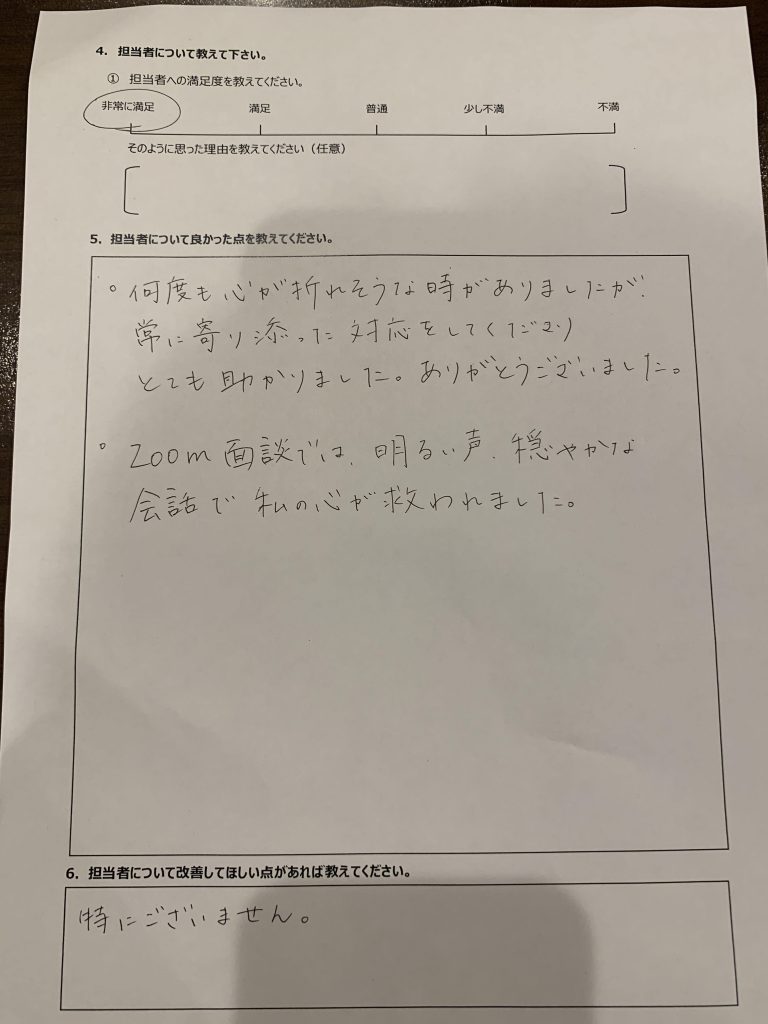 4. 担当者について教えて下さい。
① 担当者への満足度を教えてください。
非常に満足 満足 普通 少し不満 不満
そのように思った理由を教えてください（任意）
5. 担当者について良かった点を教えてください。
。何度も心が折れそうな時がありましたが、
常に寄り添った対応をしてくださり
とても助かりました。ありがとうございました。
。Zoom面談では、明るい声、穏やかな
会話で私の心が救われました。
6. 担当者について改善してほしい点があれば教えてください。
特にございません。